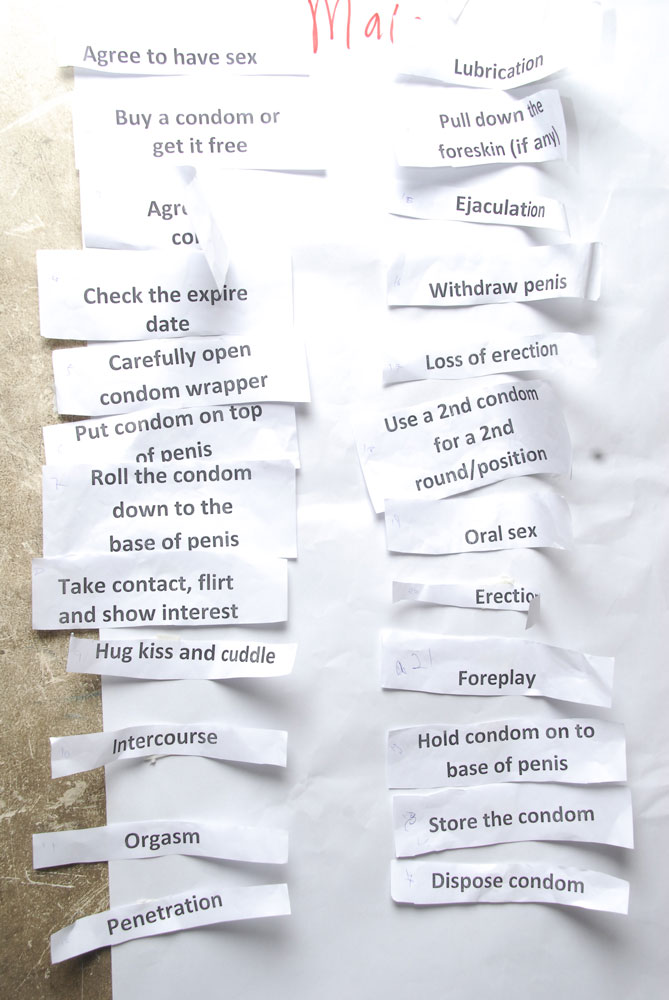 Mai-
Agree to have sex
Buy a condom or
get it free
Check the expire
date
Carefully open
condom wrapper
Put condom on top
of penis
Roll the condom
down to the
base of penis
Take contact, flirt
and show interest
Hug kiss and cuddle
Intercourse
Orgasm
Penetration
Lubrication
Pull down the
foreskin (if any)
Ejaculation
Withdraw penis
Loss of erection
Use a 2nd condom
for a 2nd
round/position
Oral sex
Foreplay
Hold condom on to
base of penis
Store the condom
Dispose condom